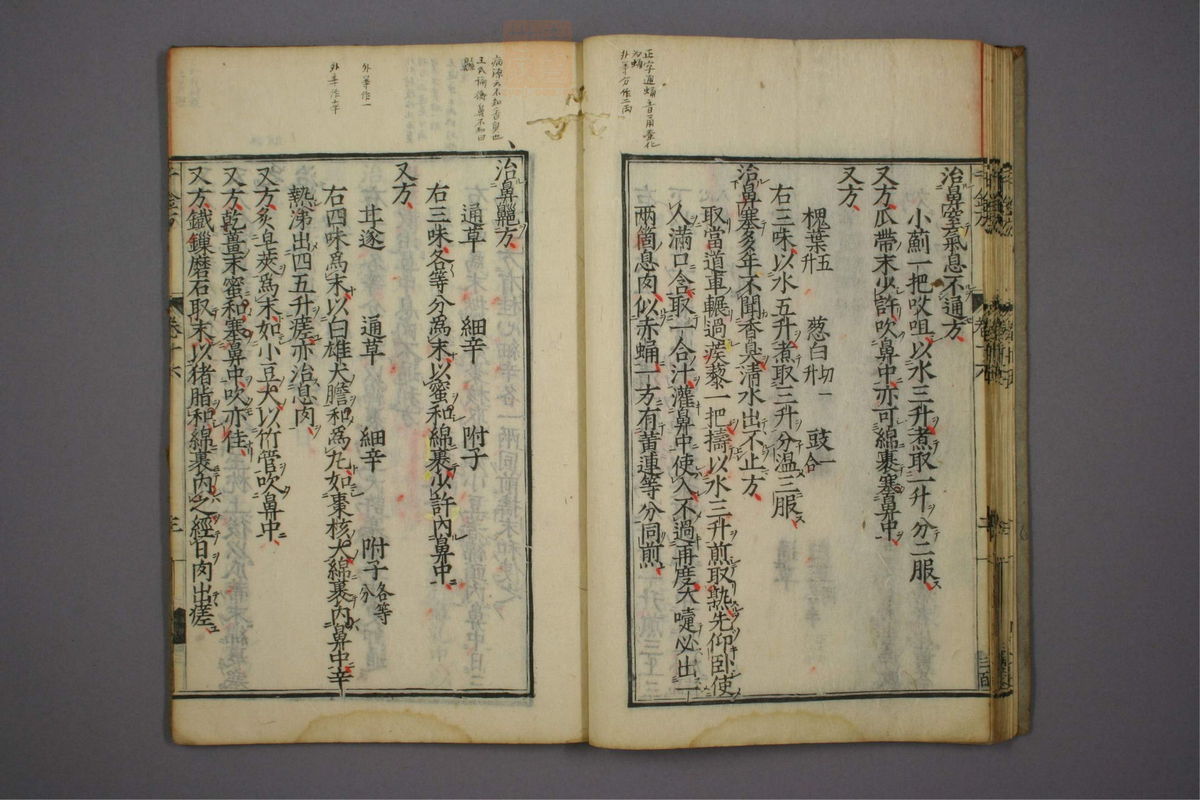 治鼻窒氣息不通方
小薊一把㕮咀以水三升煮取一升分二服
又方瓜帶末少許吹鼻中亦可綿裹塞鼻中
又方
槐葉五升 葱白切一升 豉一合
右三味以水五升煮取三升分温三服
治鼻塞多年不聞香臭清水出不止方
取當道車輾過蒺藜一把擣以水三升煎取熟先仰卧使
人滿口含取一合汁灌鼻中使入不過再度大嚏必出一
兩箇息肉似赤蛹一方有黄連等分同煎
治鼻齆方
通草 細辛 附子
右三味各等分爲末以蜜和綿裹少許内鼻中
又方
甘遂 通草 細辛 附子各等分
右四味爲末以白雄犬膽和爲丸如棗核大綿裹内鼻中辛
熱涕出四五升瘥亦治息肉
又方炙皂莢爲末如小豆大以竹管吹鼻中
又方乾薑末蜜和塞鼻中吹亦佳
又方鐵鏁磨石取末以猪脂和綿裹内之經日肉出瘥
千金方 卷十六 三
正字通蛹音甬蠶化
爲蛹
外䑓分作二兩
病源云不知香臭也
外䑓作一